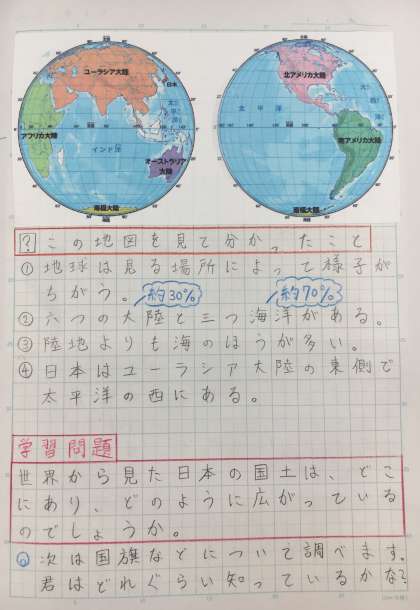 ユーラシア大陸
日本
アフリカ大陸
インド洋
オーストラリア
大陸
南極大陸
北アメリカ大陸
太平洋
南アメリカ大陸
南極大陸
? この地図を見て分かったこと
① 地球は見る場所によって様子が
ちがう。
約30%
約70%
② 六つの大陸と三つ海洋がある。
③ 陸地よりも海のほうが多い。
④ 日本はユーラシア大陸の東側で
太平洋の西にある。
学習問題
世界から見た日本の国土は、どこ
にあり、どのように広がっている
のでしょうか。
次は国旗などについて調べます。
君はどれぐらい知っているかな?